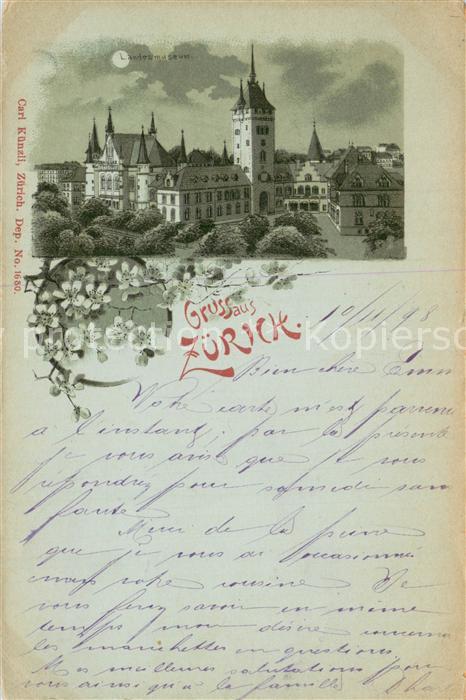 Landesmuseum.
Carl Künzli, Zürich. Dep. No. 1680.
Gruss aus
ZÜRICH.
protection Kopierschutz
Bien chère Emm
Votre carte m'est parvenu
à l'instant; par la présente
je vous avis que je vous
répondrez pour samedi sans
faute
Merci de la peine
que je vous ai occasionné
votre cousine Je
vous ferez savoir en même
temps mon désire concerna
les manchettes en questions
Mes meilleures salutations pour
vous ainsi qu'à la famille